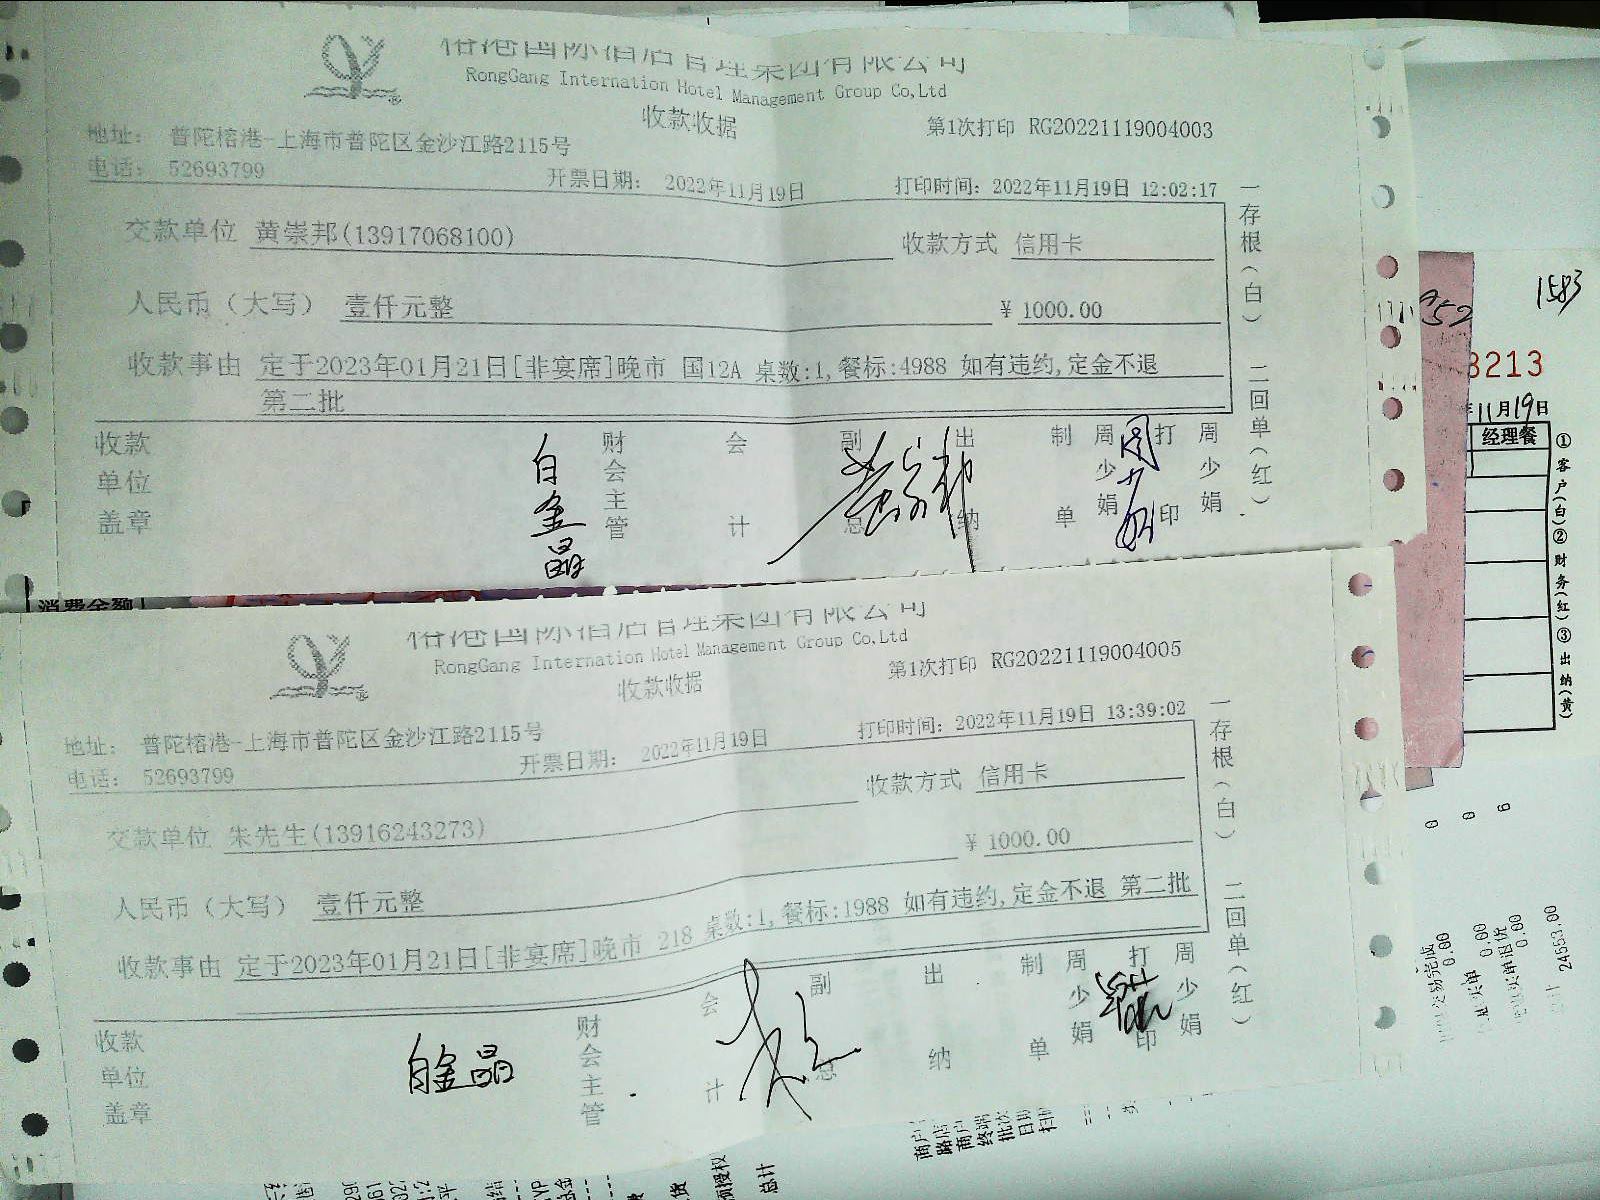 榕港国际酒店管理集团有限公司
RongGang Internation Hotel Management Group Co,Ltd
收款收据
第1次打印 RG20221119004003
地址: 普陀榕港-上海市普陀区金沙江路2115号
电话: 52693799
开票日期: 2022年11月19日
打印时间: 2022年11月19日 12:02:17
交款单位 黄崇邦(13917068100)
收款方式 信用卡
人民币（大写） 壹仟元整
¥ 1000.00
收款事由 定于2023年01月21日[非宴席]晚市 国12A 桌数:1,餐标:4988 如有违约,定金不退
第二批
收款单位盖章
白金晶
财会主管
会计
副总
黄崇邦
出纳
制单
周少娟
打印
周少娟
一存根(白) 二回单(红)
榕港国际酒店管理集团有限公司
RongGang Internation Hotel Management Group Co,Ltd
收款收据
第1次打印 RG20221119004005
地址: 普陀榕港-上海市普陀区金沙江路2115号
电话: 52693799
开票日期: 2022年11月19日
打印时间: 2022年11月19日 13:39:02
交款单位 朱先生(13916243273)
收款方式 信用卡
人民币（大写） 壹仟元整
¥ 1000.00
收款事由 定于2023年01月21日[非宴席]晚市 218 桌数:1,餐标:1988 如有违约,定金不退 第二批
收款单位盖章
白金晶
财会主管
会计
副总
出纳
制单
周少娟
打印
周少娟
一存根(白) 二回单(红)
消费金额
1583
52
3213
11月19日
经理餐
①客户(白)②财务(红)③出纳(黄)
0
0
6
交易完成
0.00
0.00
0.00
24553.00
商户
终端
批次
总计